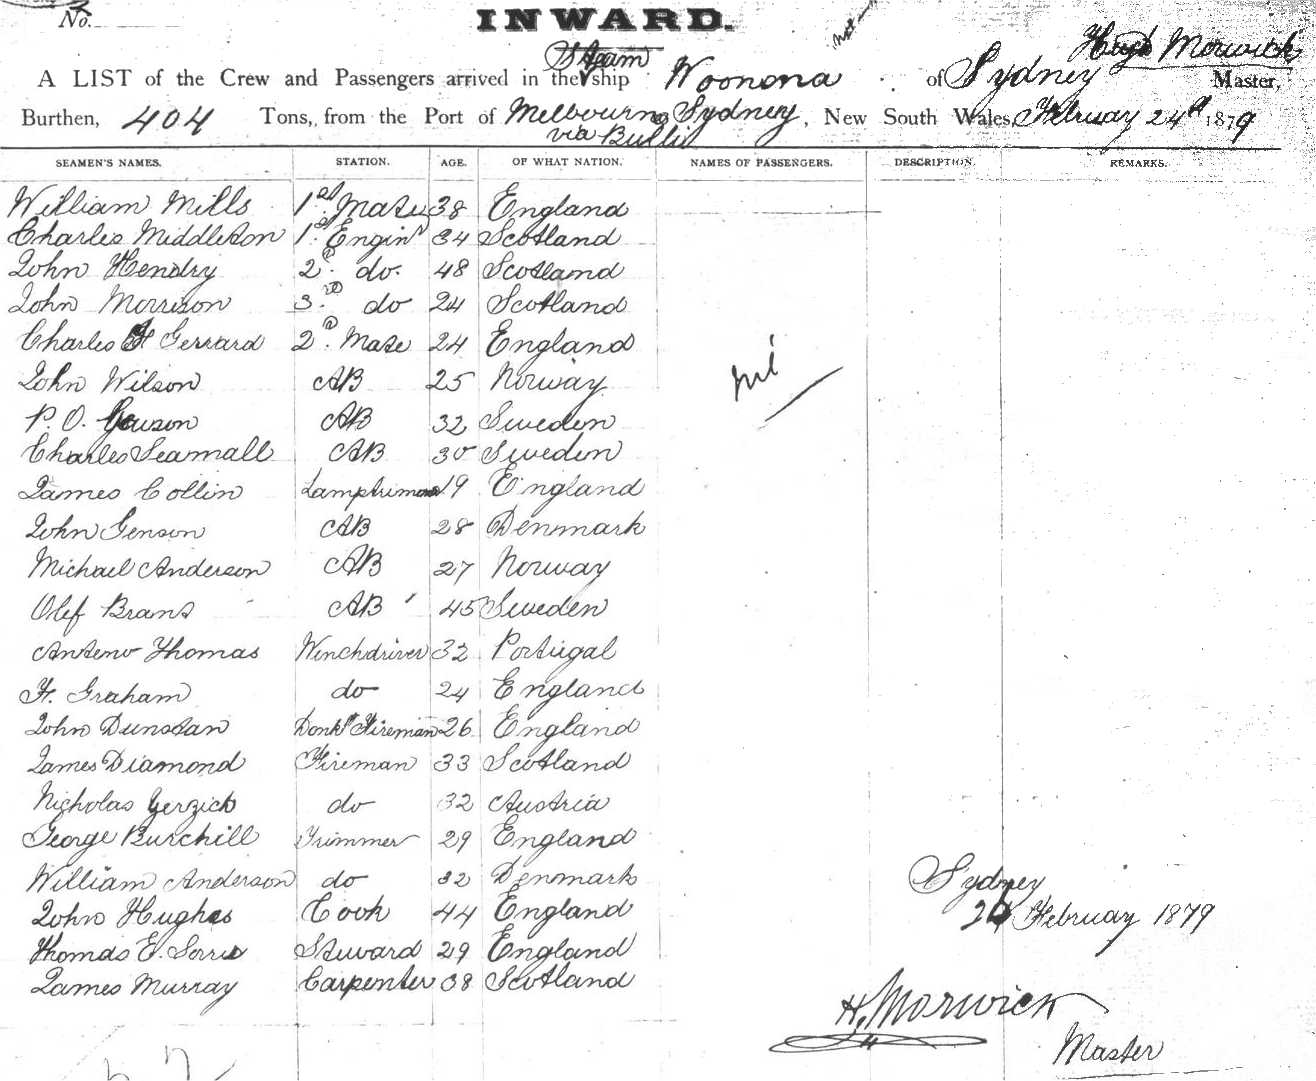 No.
INWARD.
Steam
Hugh Morwick
A LIST of the Crew and Passengers arrived in the ship Woonona of Sydney Master,
Burthen, 404 Tons, from the Port of Melbourne Sydney, New South Wales, February 24th 1879
via Bulli
SEAMEN'S NAMES. STATION. AGE. OF WHAT NATION. NAMES OF PASSENGERS. DESCRIPTION. REMARKS.
William Mills 1st Mate 38 England
Charles Middleton 1st Enginr 34 Scotland
John Hendry 2d do. 48 Scotland
John Morrison 3rd do 24 Scotland
Charles H Gerrard 2d Mate 24 England
nil
John Wilson AB 25 Norway
P. O. AB 32 Sweden
Charles Seamall AB 30 Sweden
James Collin Lamptrimmer 19 England
John Genson AB 28 Denmark
Michael Anderson AB 27 Norway
Olef Brans AB 45 Sweden
Anteno Thomas Winchdriver 32 Portugal
H. Graham do 24 England
John Dunstan Donky Fireman 26 England
James Diamond Fireman 33 Scotland
Nicholas Gerzich do 32 Austria
George Burchill Trimmer 29 England
William Anderson do 32 Denmark
Sydney
John Hughes Cook 44 England
24 February 1879
Thomas E. Steward 29 England
James Murray Carpenter 38 Scotland
H. Morwick
Master